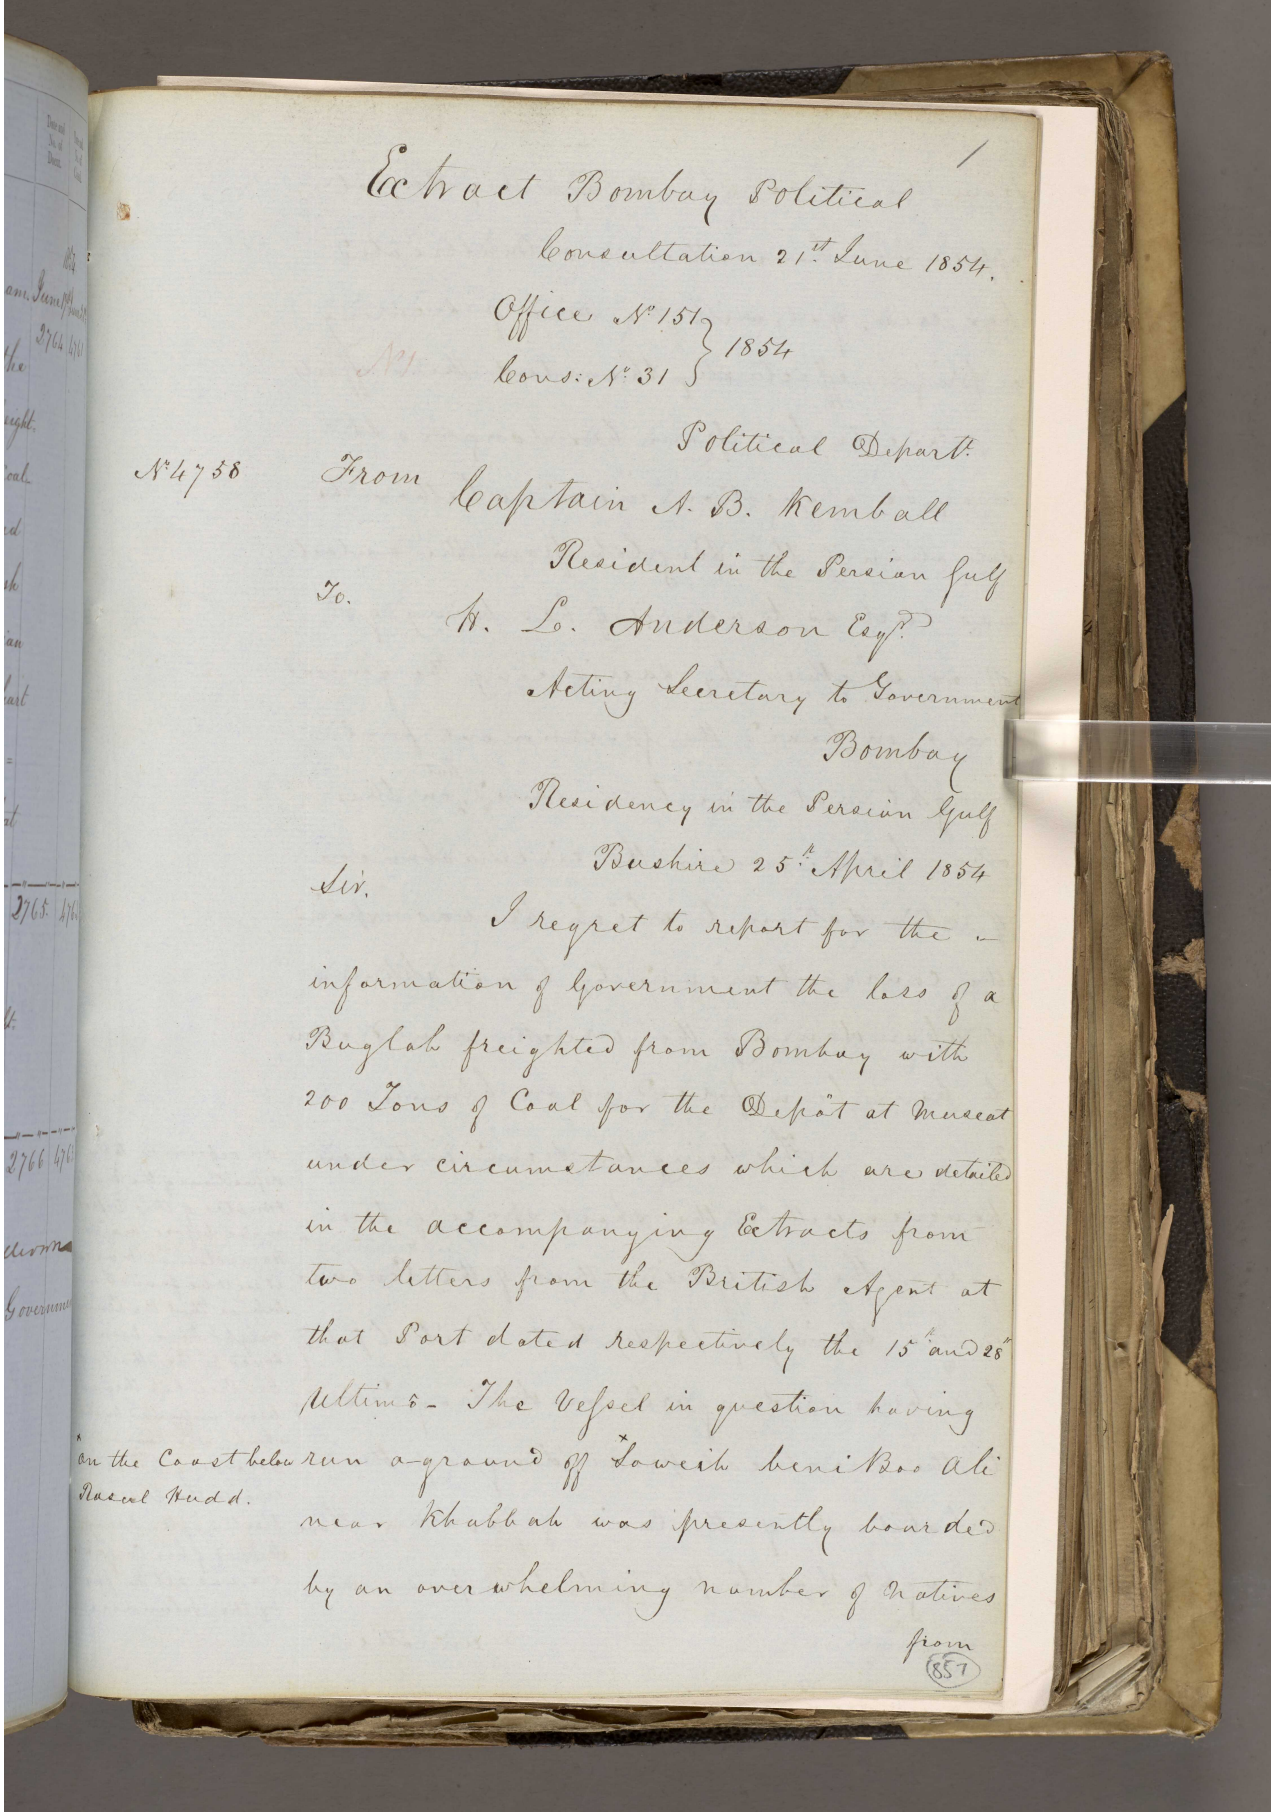 1
Extract Bombay Political
Consultation 21st. June 1854.
Office No. 151
1854
Cons: No. 31
No. 1
Political Departt.
No. 4758
From
Captain A. B. Kemball
Resident in the Persian Gulf
To.
H. L. Anderson Esqr.
Acting Secretary to Government
Bombay
Residency in the Persian Gulf
Bushire 25th. April 1854
Sir.
I regret to report for the -
information of Government the loss of a
Buglah freighted from Bombay with
200 Tons of Coal for the Depôt at Muscat
under circumstances which are detailed
in the accompanying Extracts from
two letters from the British Agent at
that Port dated respectively the 15th and 28th
Ultimo - The Vessel in question having
run a-ground off x Soweih beni Boo Ali
x on the Coast below
Rasul Hudd.
near Khabbah was presently boarded
by an overwhelming number of Natives
from
857
am. June
2764
the
eight.
Coal
ed
an
part
2765.
2766
Governme